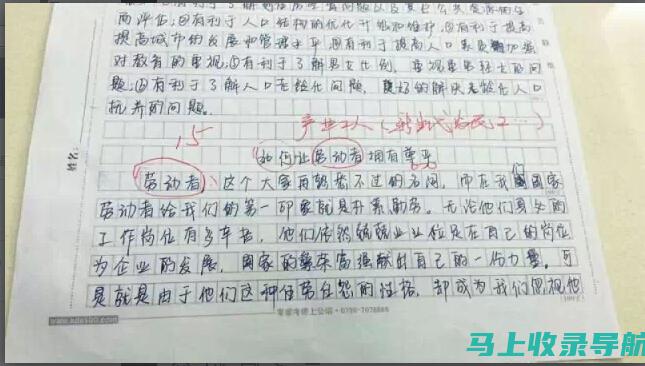 而评估;③有利于人口结构的优化升级和维护;④有利于提高
提高城市的发展和管理水平;⑤有利于提高人口素质,加强
对教育的重视;⑥有利于了解男女比例,重视重男轻女的问
题;⑦有利于了解人口老龄化问题,更好的解决老龄化人口
抚养的问题。
15
产业工人(新时代农民工…)
如何让劳动者拥有尊严
姓名:
劳动者,这个大家再熟悉不过的名词,而在我们国家
劳动者给我们的第一印象就是朴素勤劳。无论他们身处的
工作岗位有多辛苦,他们依然兢兢业业位足在自己的岗位
为企业的发展,国家的繁荣富强献出自己的一份力量。可
是就是由于他们这种任劳任怨的性格,却成为我们忽视他
马上收录导航